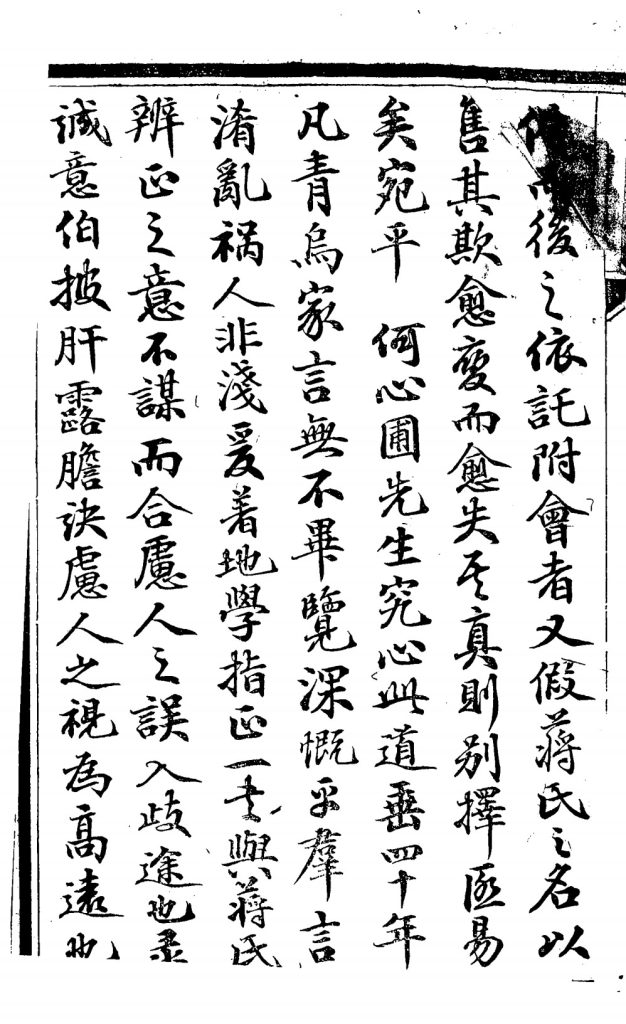 後之依託附會者又假蔣氏之名以
售其欺愈變而愈失其真則別擇匪易
矣宛平 何心圃先生究心此道垂四十年
凡青烏家言無不畢覽深慨乎羣言
淆亂禍人非淺爰著地學指正一書與蔣氏
辨正之意不謀而合慮人之誤入歧途也录
誠意伯披肝露膽訣慮人之視為高遠也
一